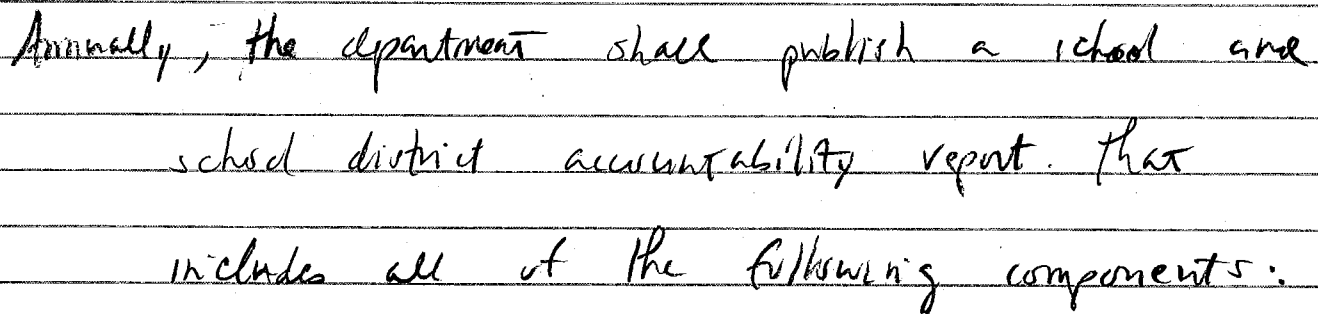 Annually, the department shall publish a school and
school district accountability report. that
includes all of the following components: